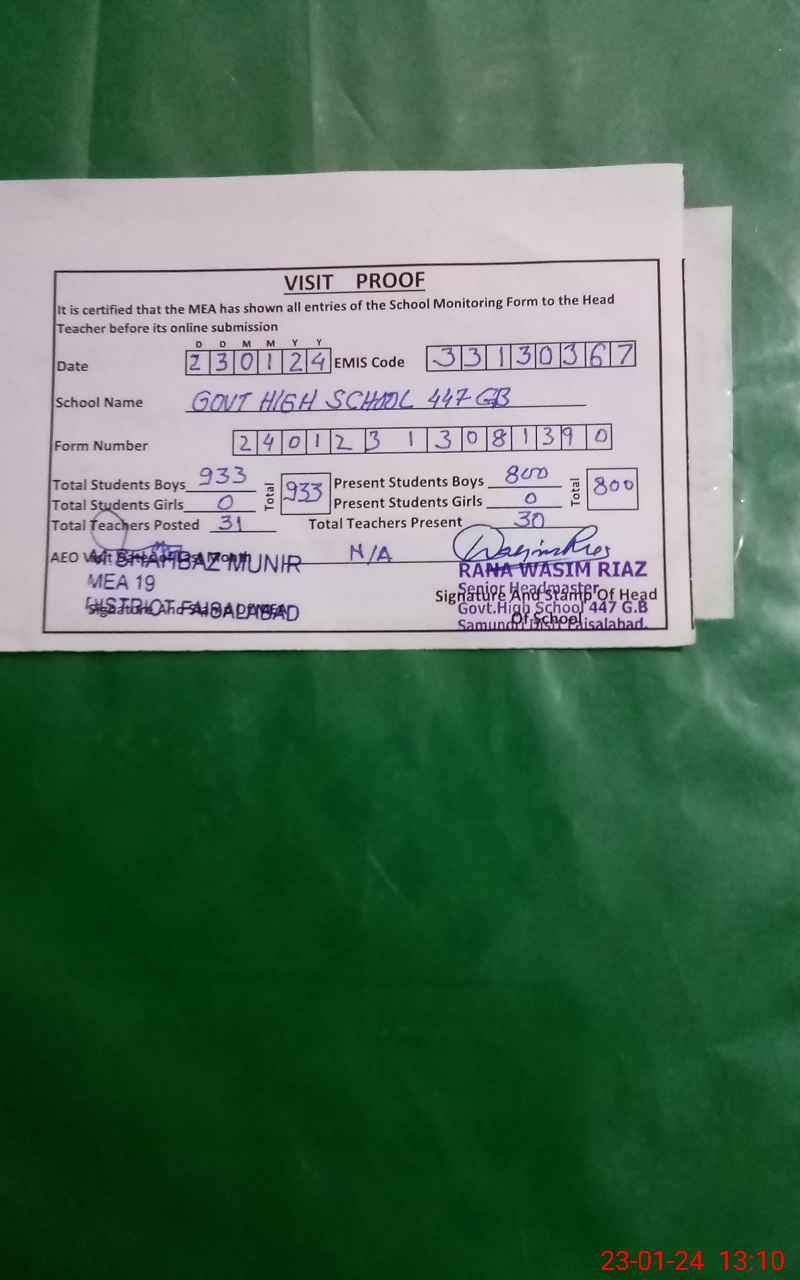 VISIT PROOF
It is certified that the MEA has shown all entries of the School Monitoring Form to the Head
Teacher before its online submission
D D M M Y Y
Date 230124 EMIS Code 33130367
School Name GOVT HIGH SCHOOL 447 GB
Form Number 24012313081390
Total Students Boys 933 Total 933 Present Students Boys 800 Total 800
Total Students Girls 0 Present Students Girls 0
Total Teachers Posted 31 Total Teachers Present 30
AEO N/A
SHAHBAZ MUNIR
MEA 19
DISTRICT FAISALABAD
RANA WASIM RIAZ
Senior Headmaster
Signature And Stamp Of Head
Govt.High School 447 G.B
Of School
Samundri Distt Faisalabad.
23-01-24 13:10